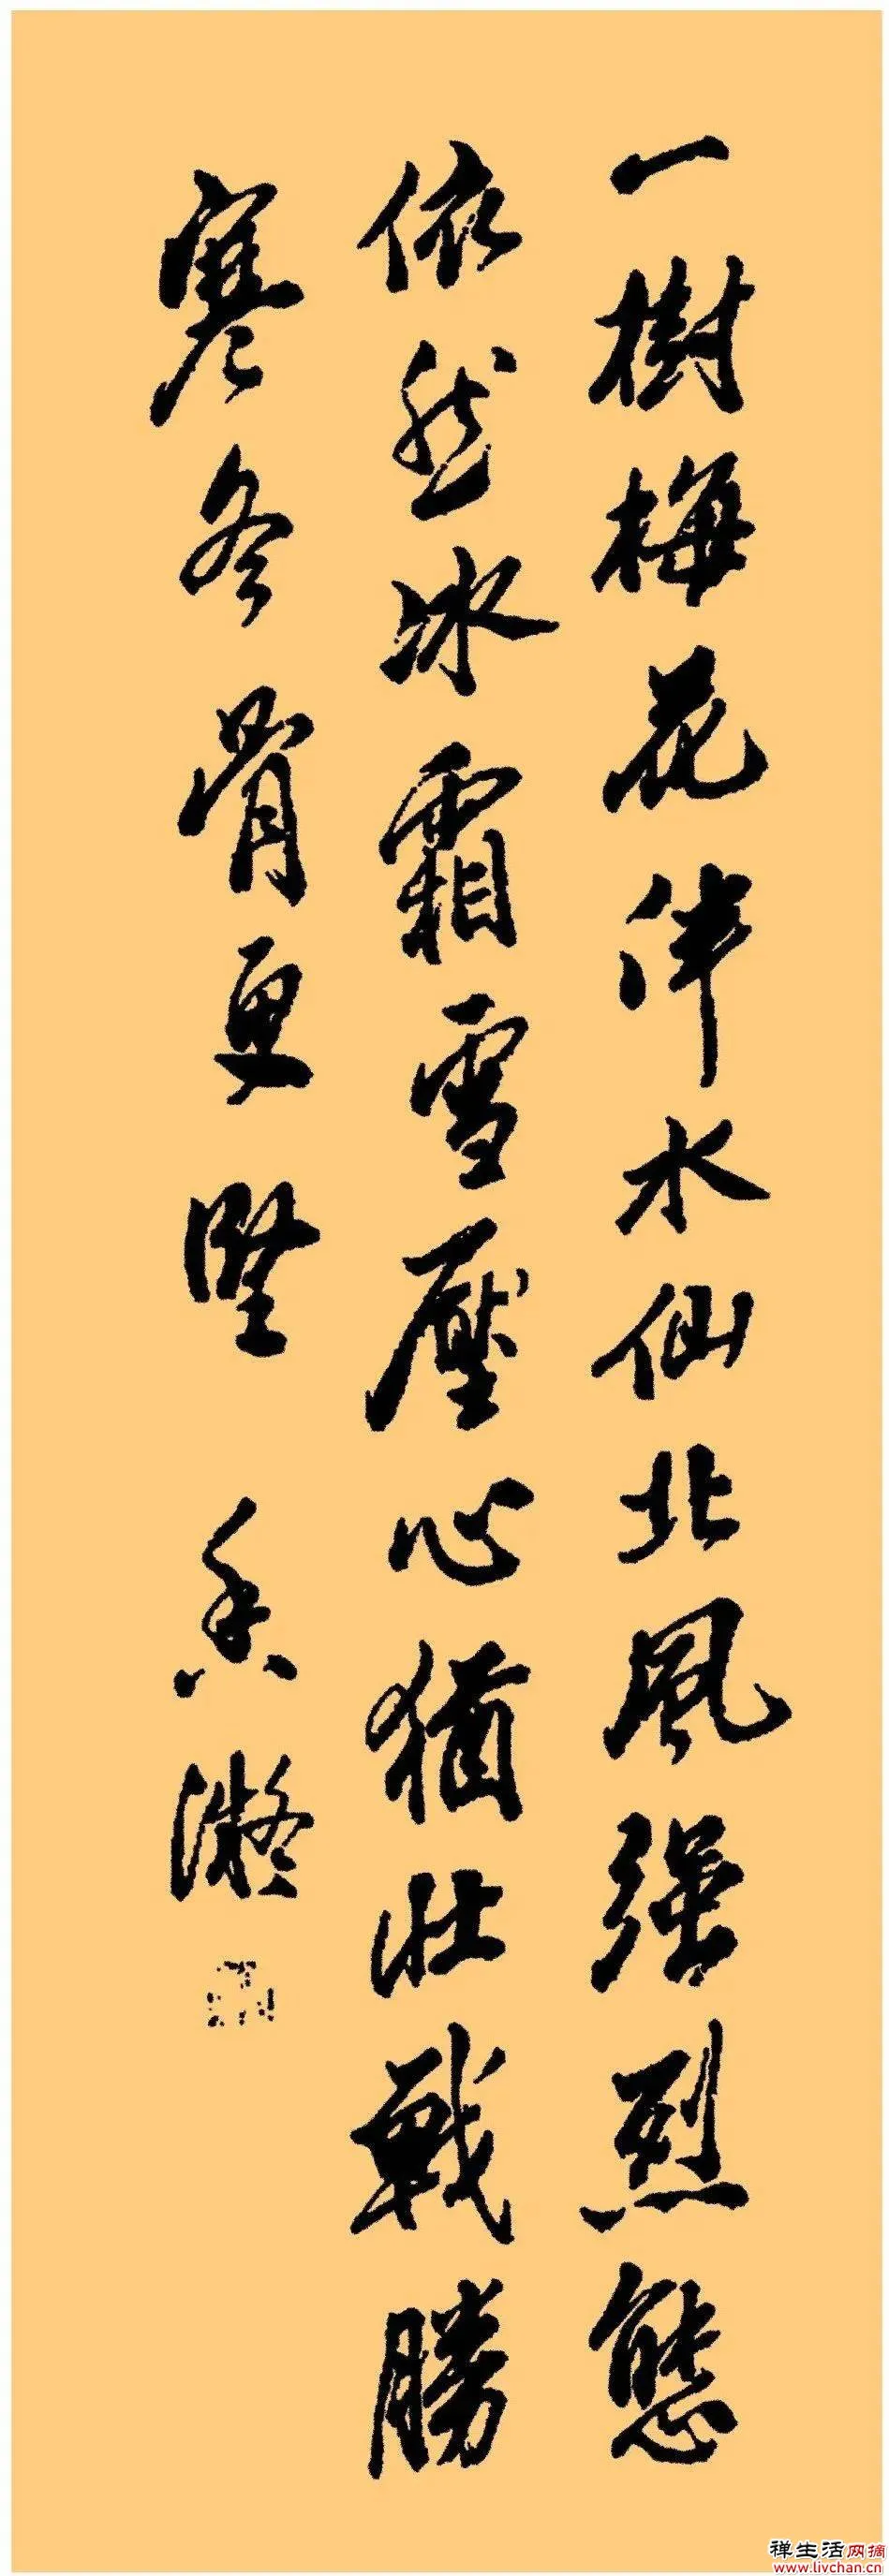 一樹梅花伴水仙北風强烈態
依然冰霜雪壓心猶壯戰勝
寒冬骨更堅 香凝
禅生活网摘
www.livchan.cn